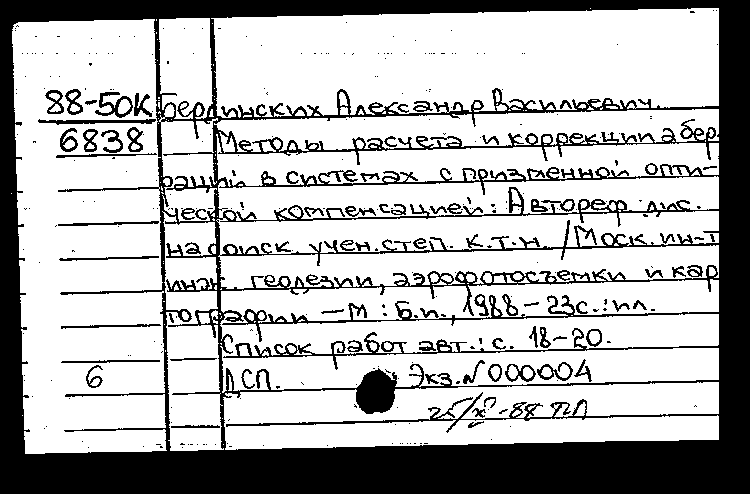 88-50К Берлинских, Александр Васильевич.
6838 Методы расчета и коррекции абер
раций в системах с призменной опти-
ческой компенсацией: Автореф. дис.
на соиск. учен. степ. к.т.н. /Моск. ин-т
инж. геодезии, аэрофотосъемки и кар
тографии — М : Б.и., 1988. — 23с. : ил.
Список работ авт. : с. 18-20.
6 ДСП. Экз. № 000004
25/X -88